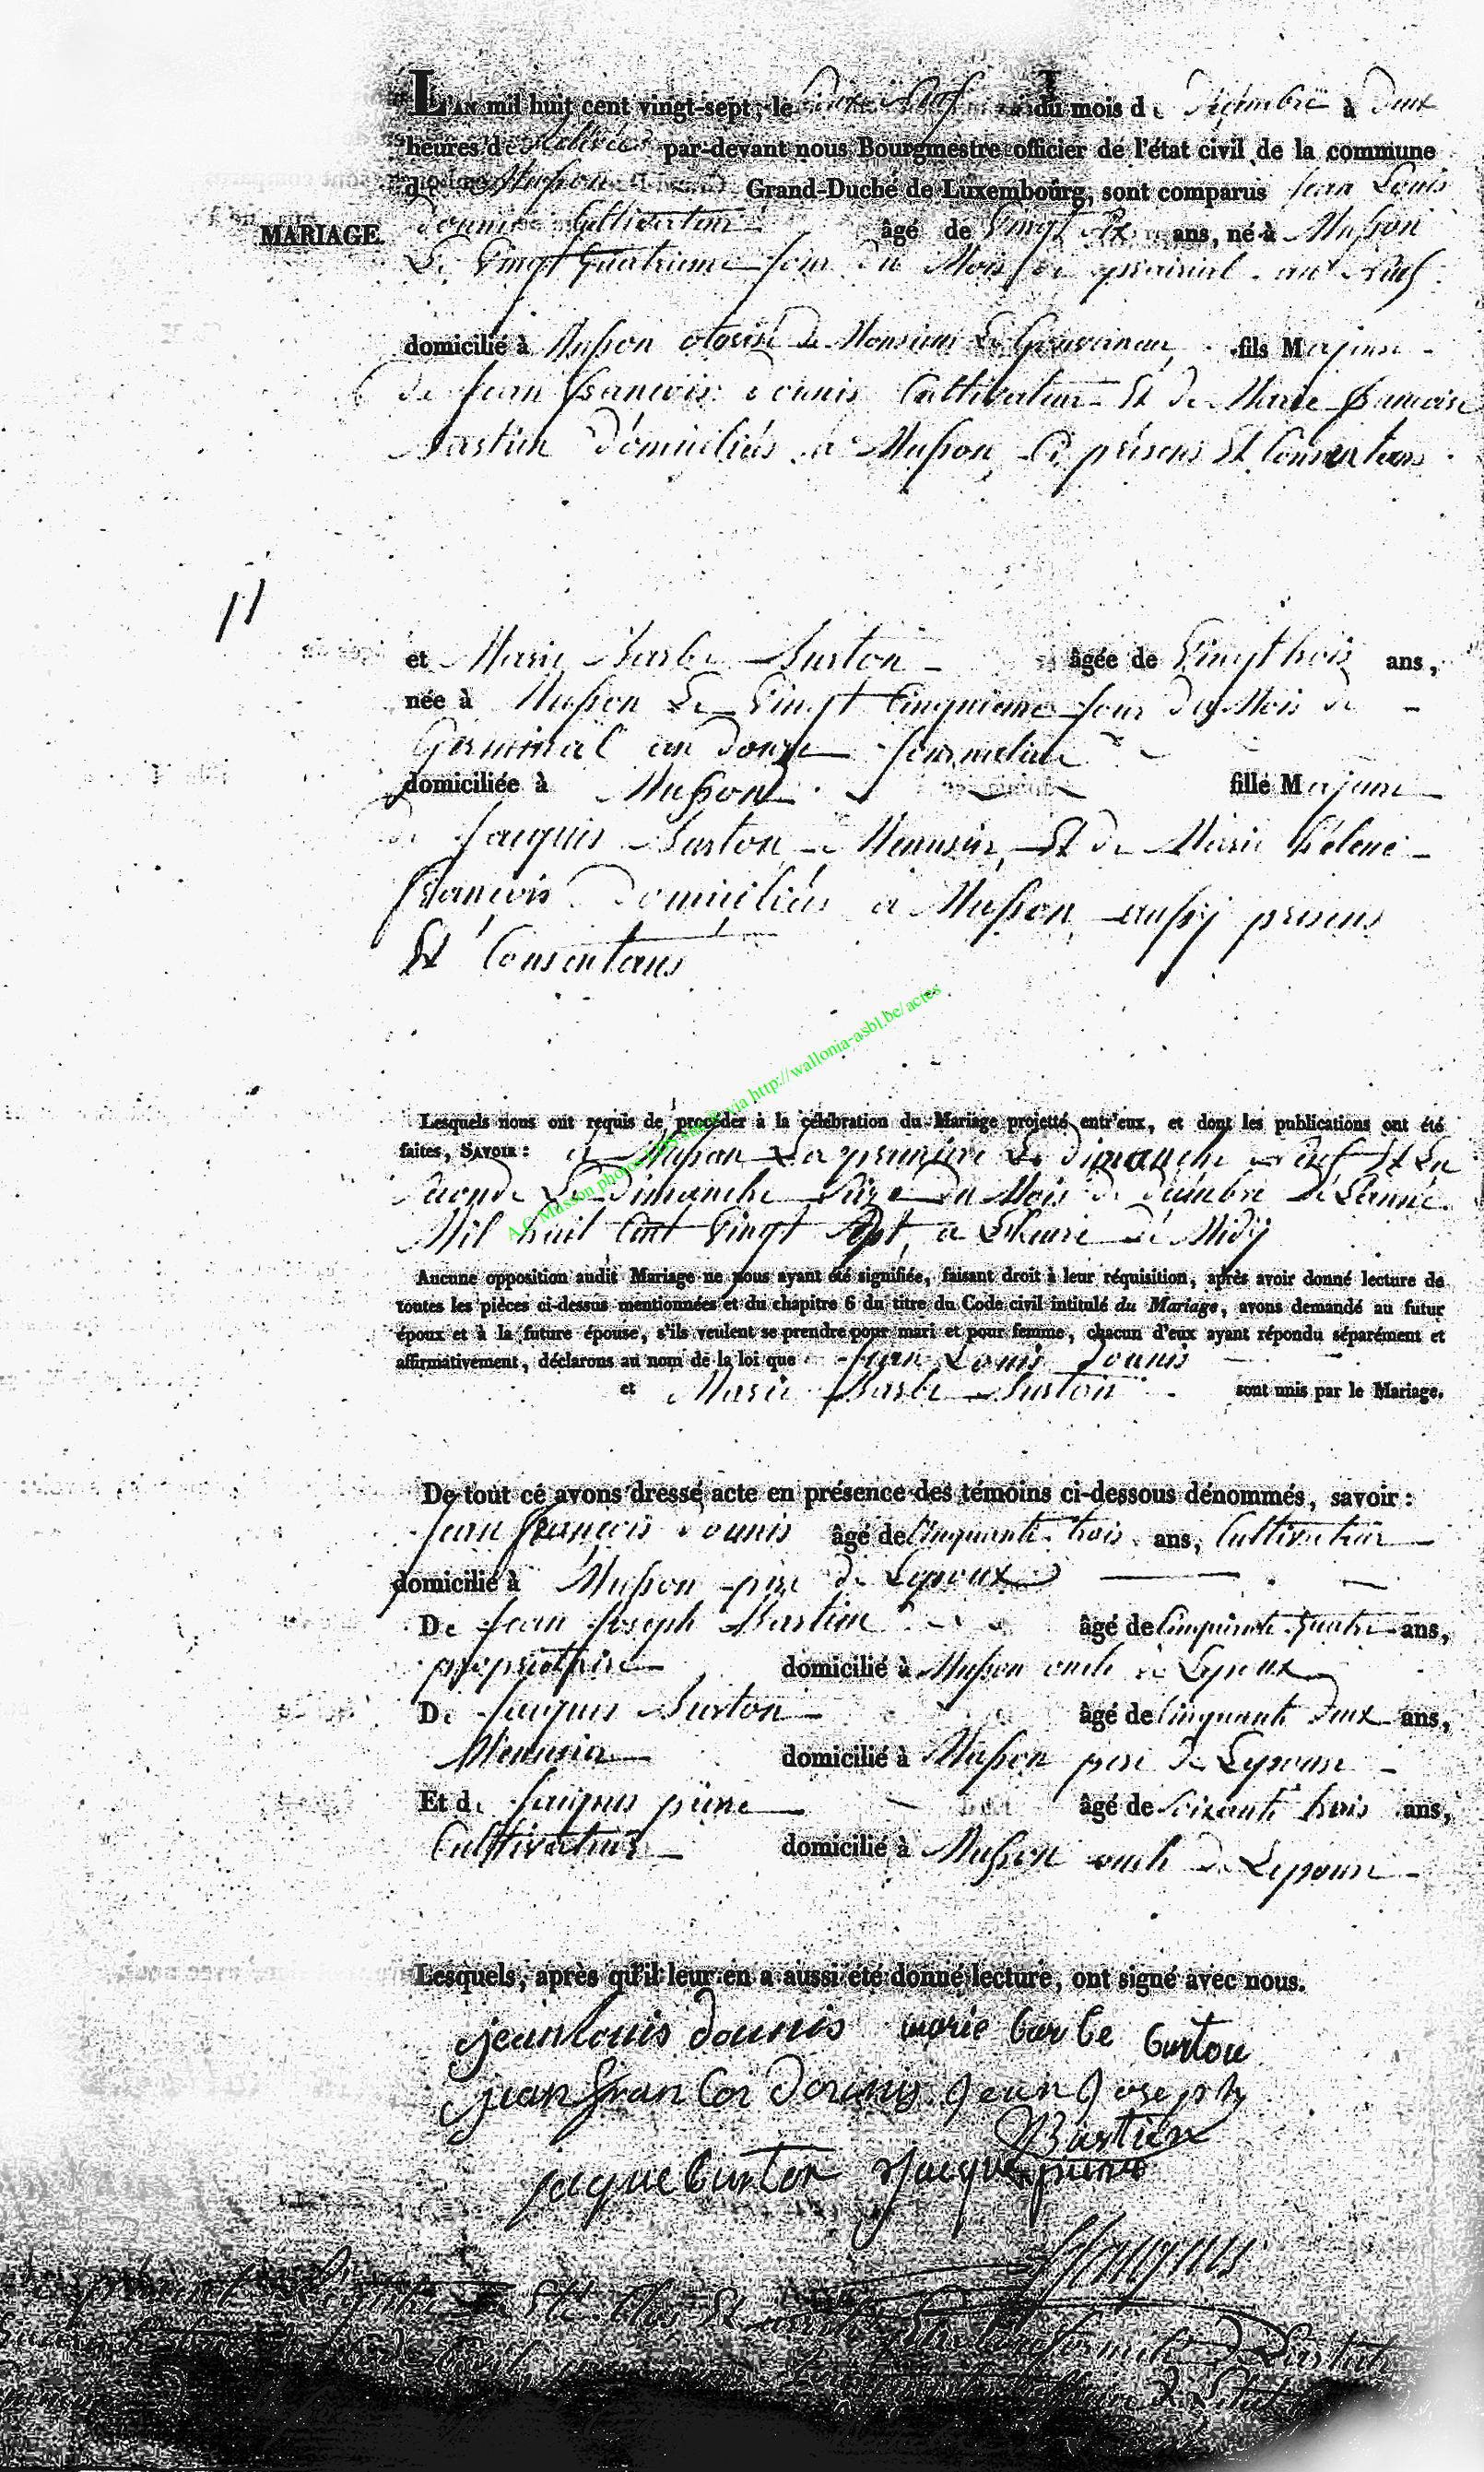 L'AN mil huit cent vingt-sept, le dix Neuf du mois de Décembre à Deux
heures de Relevée par-devant nous Bourgmestre officier de l'état civil de la commune
de Musson Grand-Duché de Luxembourg, sont comparus Jean Louis
MARIAGE. Dounis Cultivateur âgé de Vingt Six ans, né à Musson
Le Vingt Quatrieme Jour du Mois de prairial an Neuf
domicilié à Musson de Monsieur Le Gouverneur fils Majeur
de Jean François Dounis Cultivateur Et de Marie françoise
Bastien Domiciliés à Musson Ci présens Et Consentans
11
et Marie Barbe Burton âgée de Vingt trois ans,
née à Musson Le Vingt Cinquieme Jour du Mois de
Germinal an Douze Journaliere
domiciliée à Musson fille Majeure
de Jacques Burton Menusier Et de Marie hélene
François Domiciliés a Musson aussy présens
Et Consentans
Lesquels nous ont requis de procéder à la célébration du Mariage projetté entr'eux, et dont les publications ont été
faites, SAVOIR : a Musson La premiere Le Dimanche neuf Et La
Seconde Le Dimanche Seize du Mois de Décembre de L'année
Mil huit Cent Vingt Sept, a L'heure de Midy
Aucune opposition audit Mariage ne nous ayant été signifiée, faisant droit à leur réquisition, après avoir donné lecture de
toutes les pièces ci-dessus mentionnées et du chapitre 6 du titre du Code civil intitulé du Mariage, avons demandé au futur
époux et à la future épouse, s'ils veulent se prendre pour mari et pour femme, chacun d'eux ayant répondu séparément et
affirmativement, déclarons au nom de la loi que Jean Louis Dounis
et Marie Barbe Burton sont unis par le Mariage.
De tout ce avons dressé acte en présence des témoins ci-dessous dénommés, savoir :
Jean François Dounis âgé de Cinquante trois ans, Cultivateur
domicilié à Musson pere de Lepoux
De Jean Joseph Bastien âgé de Cinquante Quatre ans,
propriétaire domicilié à Musson oncle de Lepoux
De Jacques Burton âgé de Cinquante Deux ans,
Menusier domicilié à Musson pere de Lepouse
Et de Jacques piéne âgé de Soixante trois ans,
Cultivateur domicilié à Musson oncle de Lepouse
Lesquels, après qu'il leur en a aussi été donné lecture, ont signé avec nous.
jean louis dounis marie barbe burton
jean francoi Dounis Jean Joseph
Bastien
jaque burton Jacque piene
A.C. Musson photos LDS via http://wallonia-asbl.be/actes